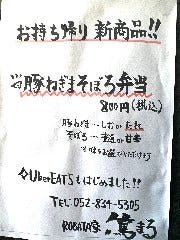 お持ち帰り 新商品!!
豚ねぎまそぼろ弁当
800円(税込)
豚ねぎま…しお or たれ
そぼろ…普通 or 甘辛
お選び下さいませ
UberEATSもはじめました!!
TEL 052-834-5305
ROBATA家